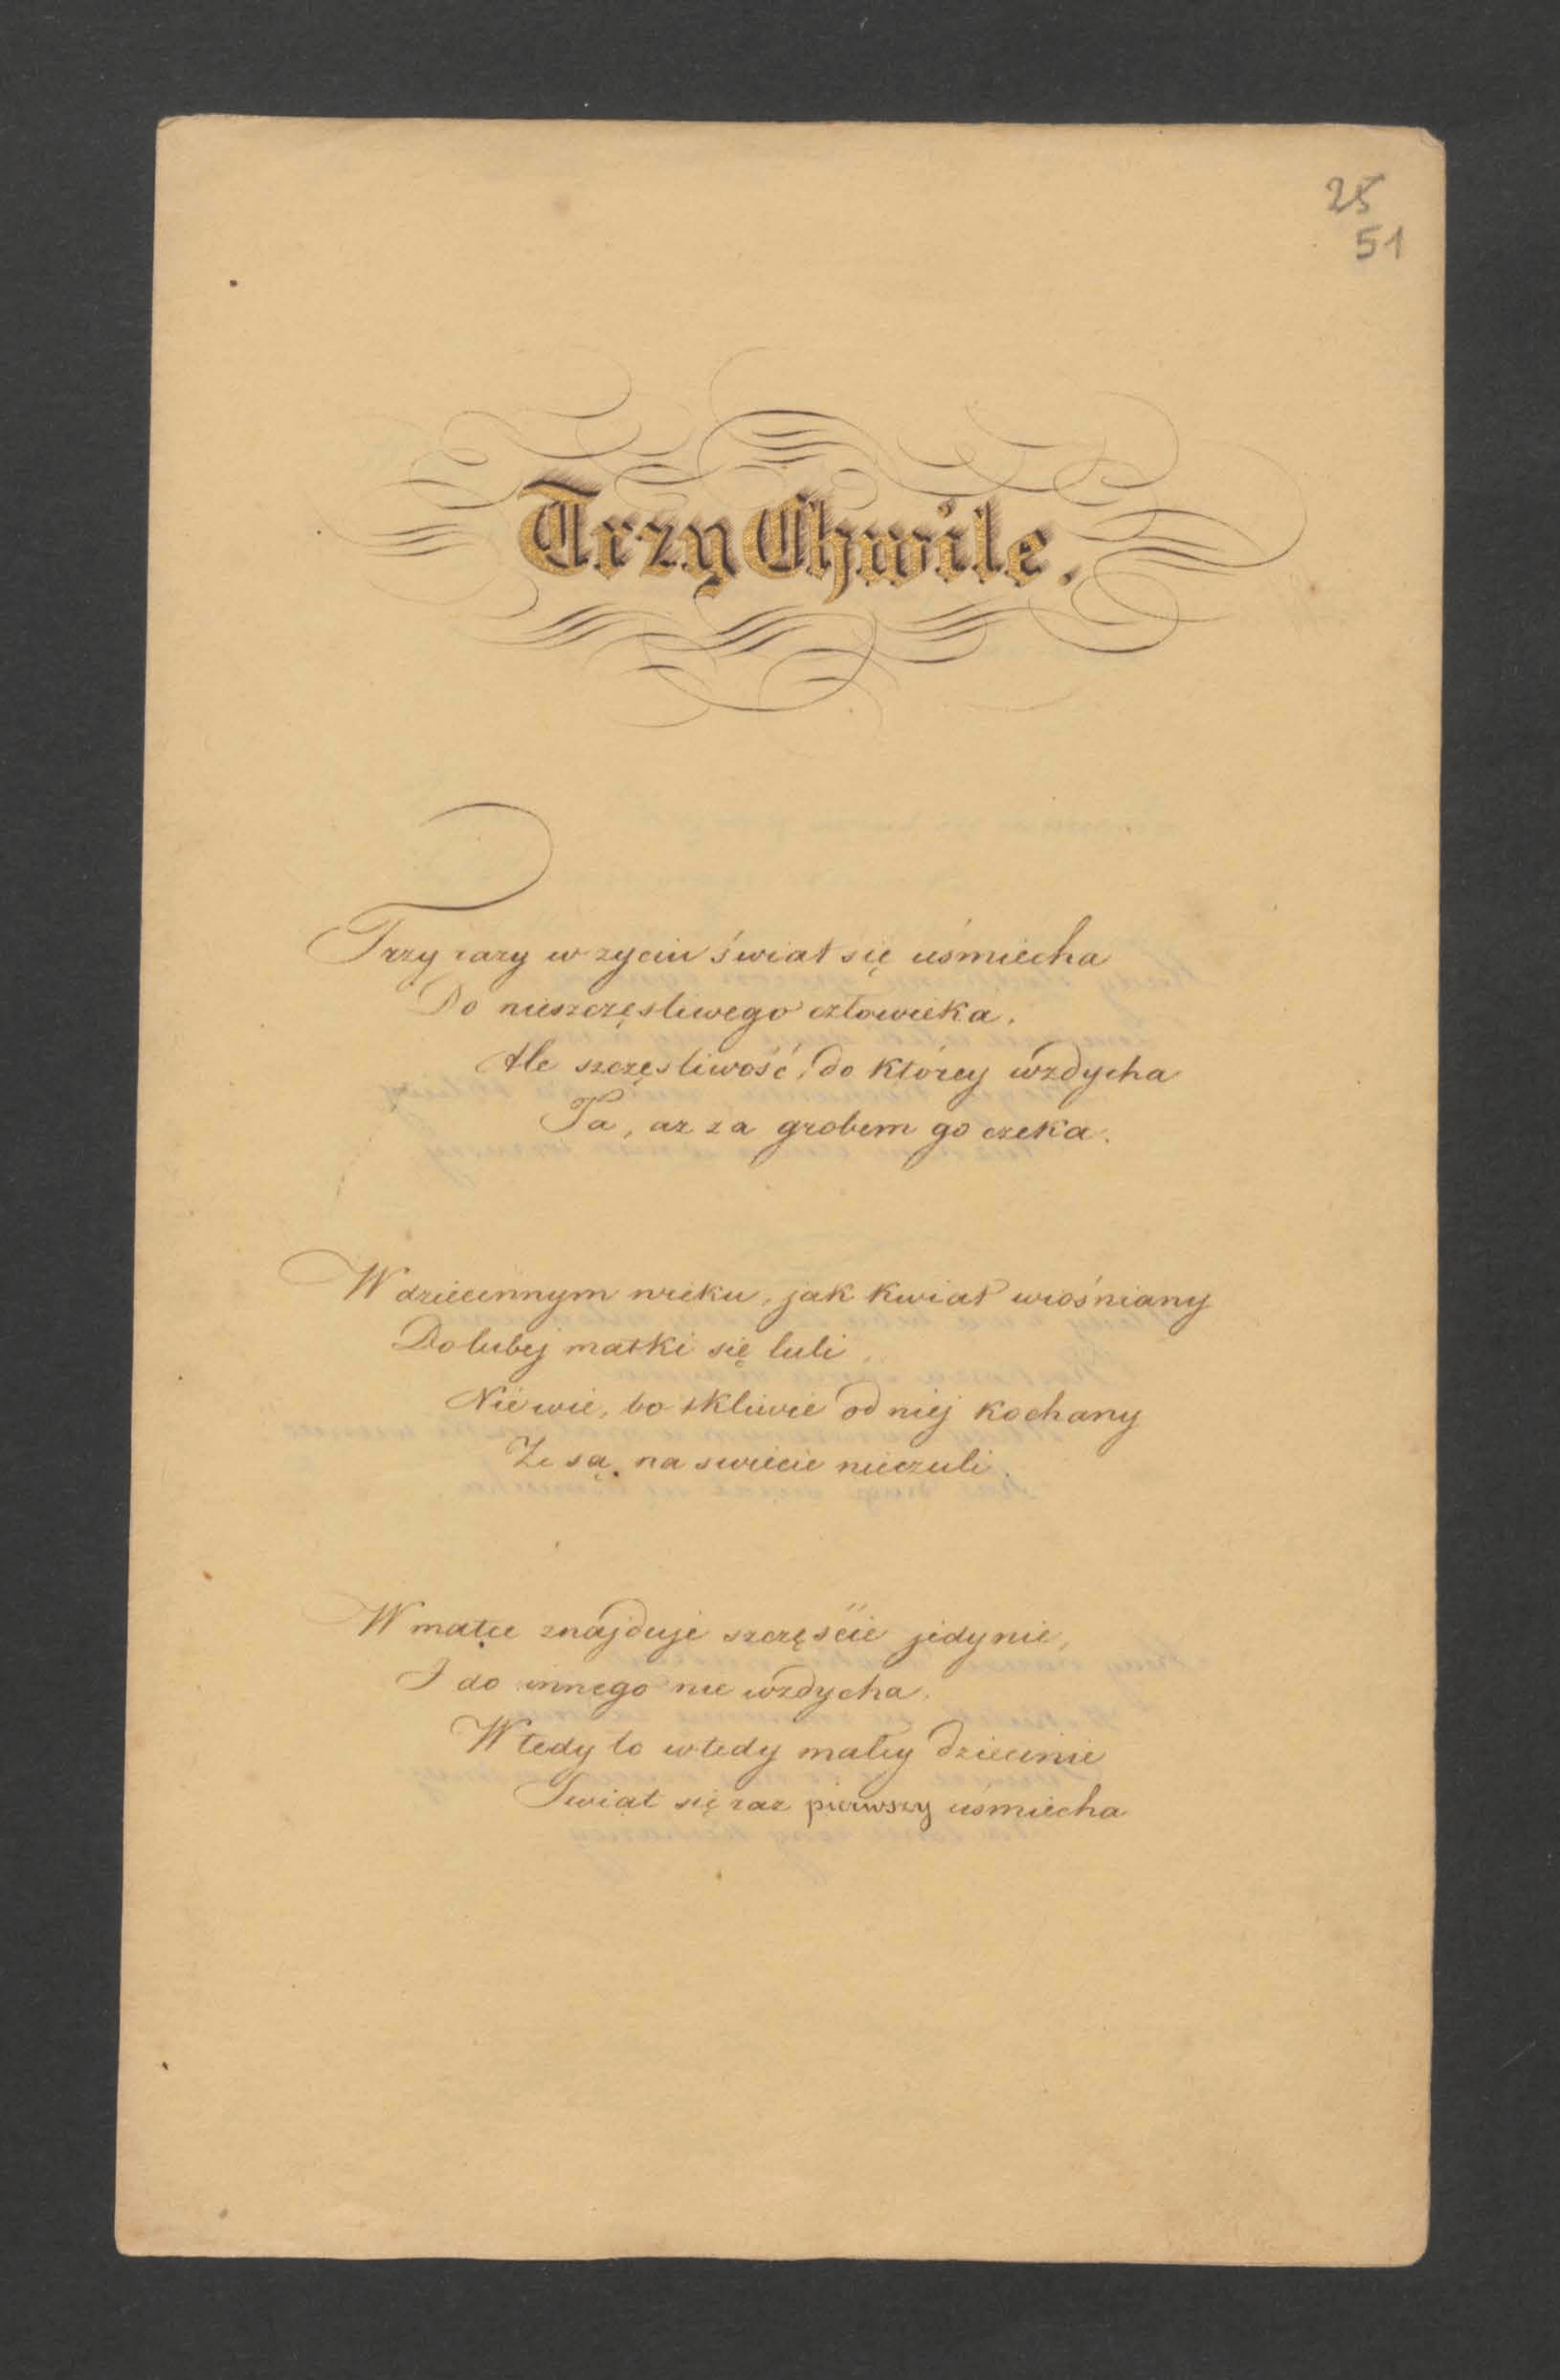 25
51
Trzy Chwile.
Trzy razy w zyciu świat się uśmiecha
Do nieszczęsliwego człowieka.
Ale szczęsliwość, do któréy wzdycha
Ta, az za grobem go czeka.
W dziecinnym wieku, jak kwiat wiośniany
Do lubéj matki się luli
Nie wie, bo tkliwie od niéj kochany
Ze są na swiecie nieczuli.
W matce znajduje szczęście jedynie,
I do innego nie wzdycha.
Wtedy to wtedy małéy dziecinie
Swiat się raz pierwszy usmiecha